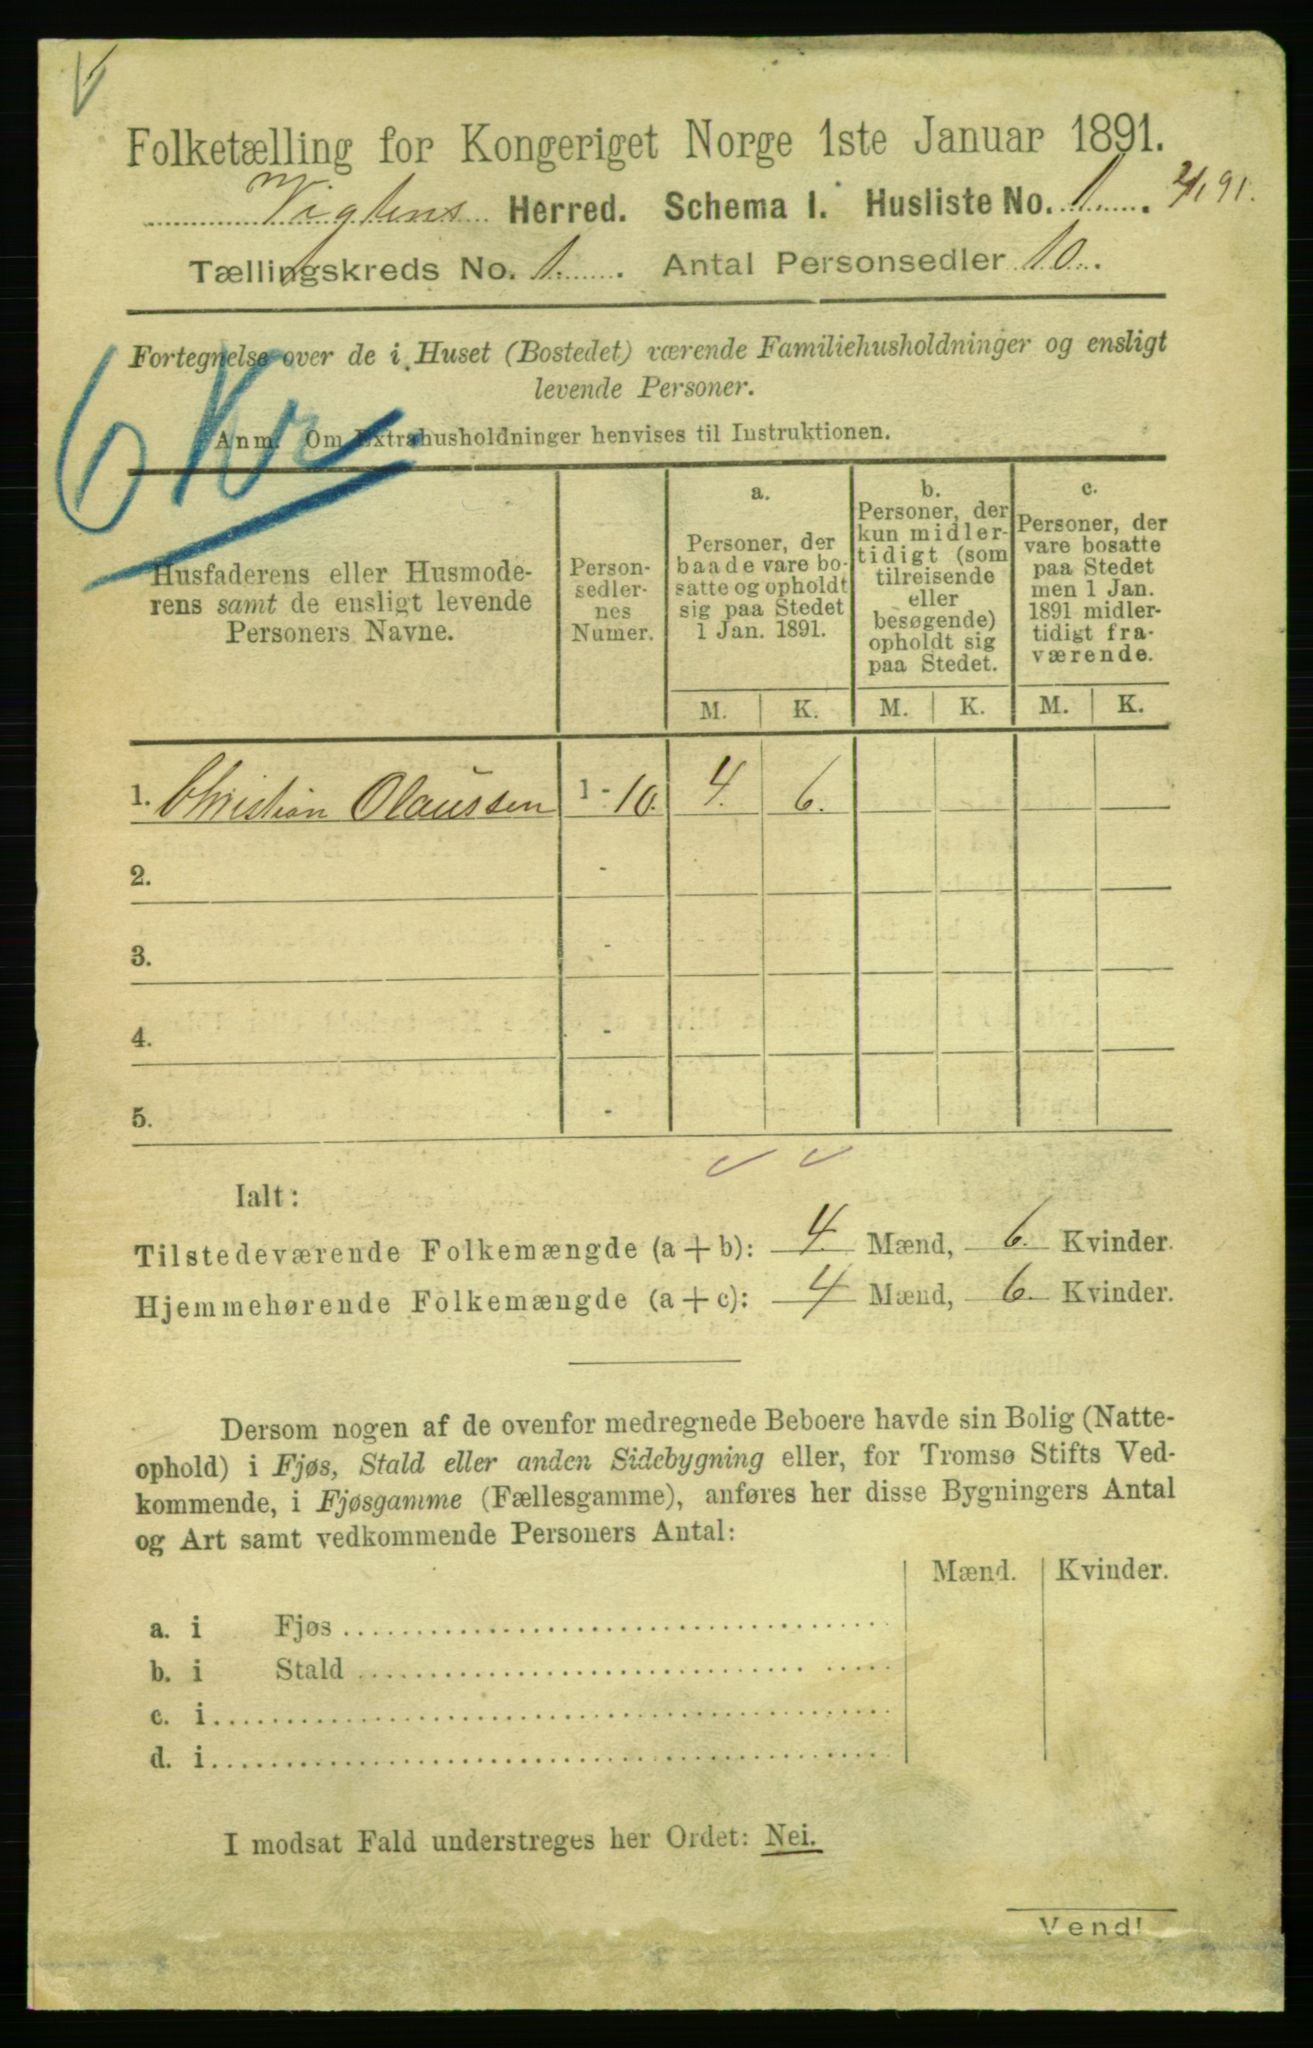 Folketælling for Kongeriget Norge 1ste Januar 1891.
Vigtens Herred. Schema I. Husliste No. 1. 2/1 91.
Tællingskreds No. 1. Antal Personsedler 10.
Fortegnelse over de i Huset (Bostedet) værende Familiehusholdninger og ensligt
levende Personer.
6 Kr
Anm. Om Extrahusholdninger henvises til Instruktionen.
Husfaderens eller Husmode-
rens samt de ensligt levende
Personers Navne.
Person-
sedler-
nes
Numer.
a.
Personer, der
baade vare bo-
satte og opholdt
sig paa Stedet
1 Jan. 1891.
b.
Personer, der
kun midler-
tidigt (som
tilreisende
eller
besøgende)
opholdt sig
paa Stedet.
c.
Personer, der
vare bosatte
paa Stedet
men 1 Jan.
1891 midler-
tidigt fra-
værende.
M. K. M. K. M. K.
1. Christian Olaussen 1 - 10. 4. 6.
2. -
3. -
4. -
5. -
Ialt:
Tilstedeværende Folkemængde (a + b): 4. Mænd, 6. Kvinder.
Hjemmehørende Folkemængde (a + c): 4 Mænd, 6. Kvinder.
Dersom nogen af de ovenfor medregnede Beboere havde sin Bolig (Natte-
ophold) i Fjøs, Stald eller anden Sidebygning eller, for Tromsø Stifts Ved-
kommende, i Fjøsgamme (Fællesgamme), anføres her disse Bygningers Antal
og Art samt vedkommende Personers Antal:
Mænd. Kvinder.
a. i Fjøs
b. i Stald
c. i
d. i
I modsat Fald understreges her Ordet: Nei.
Vend!